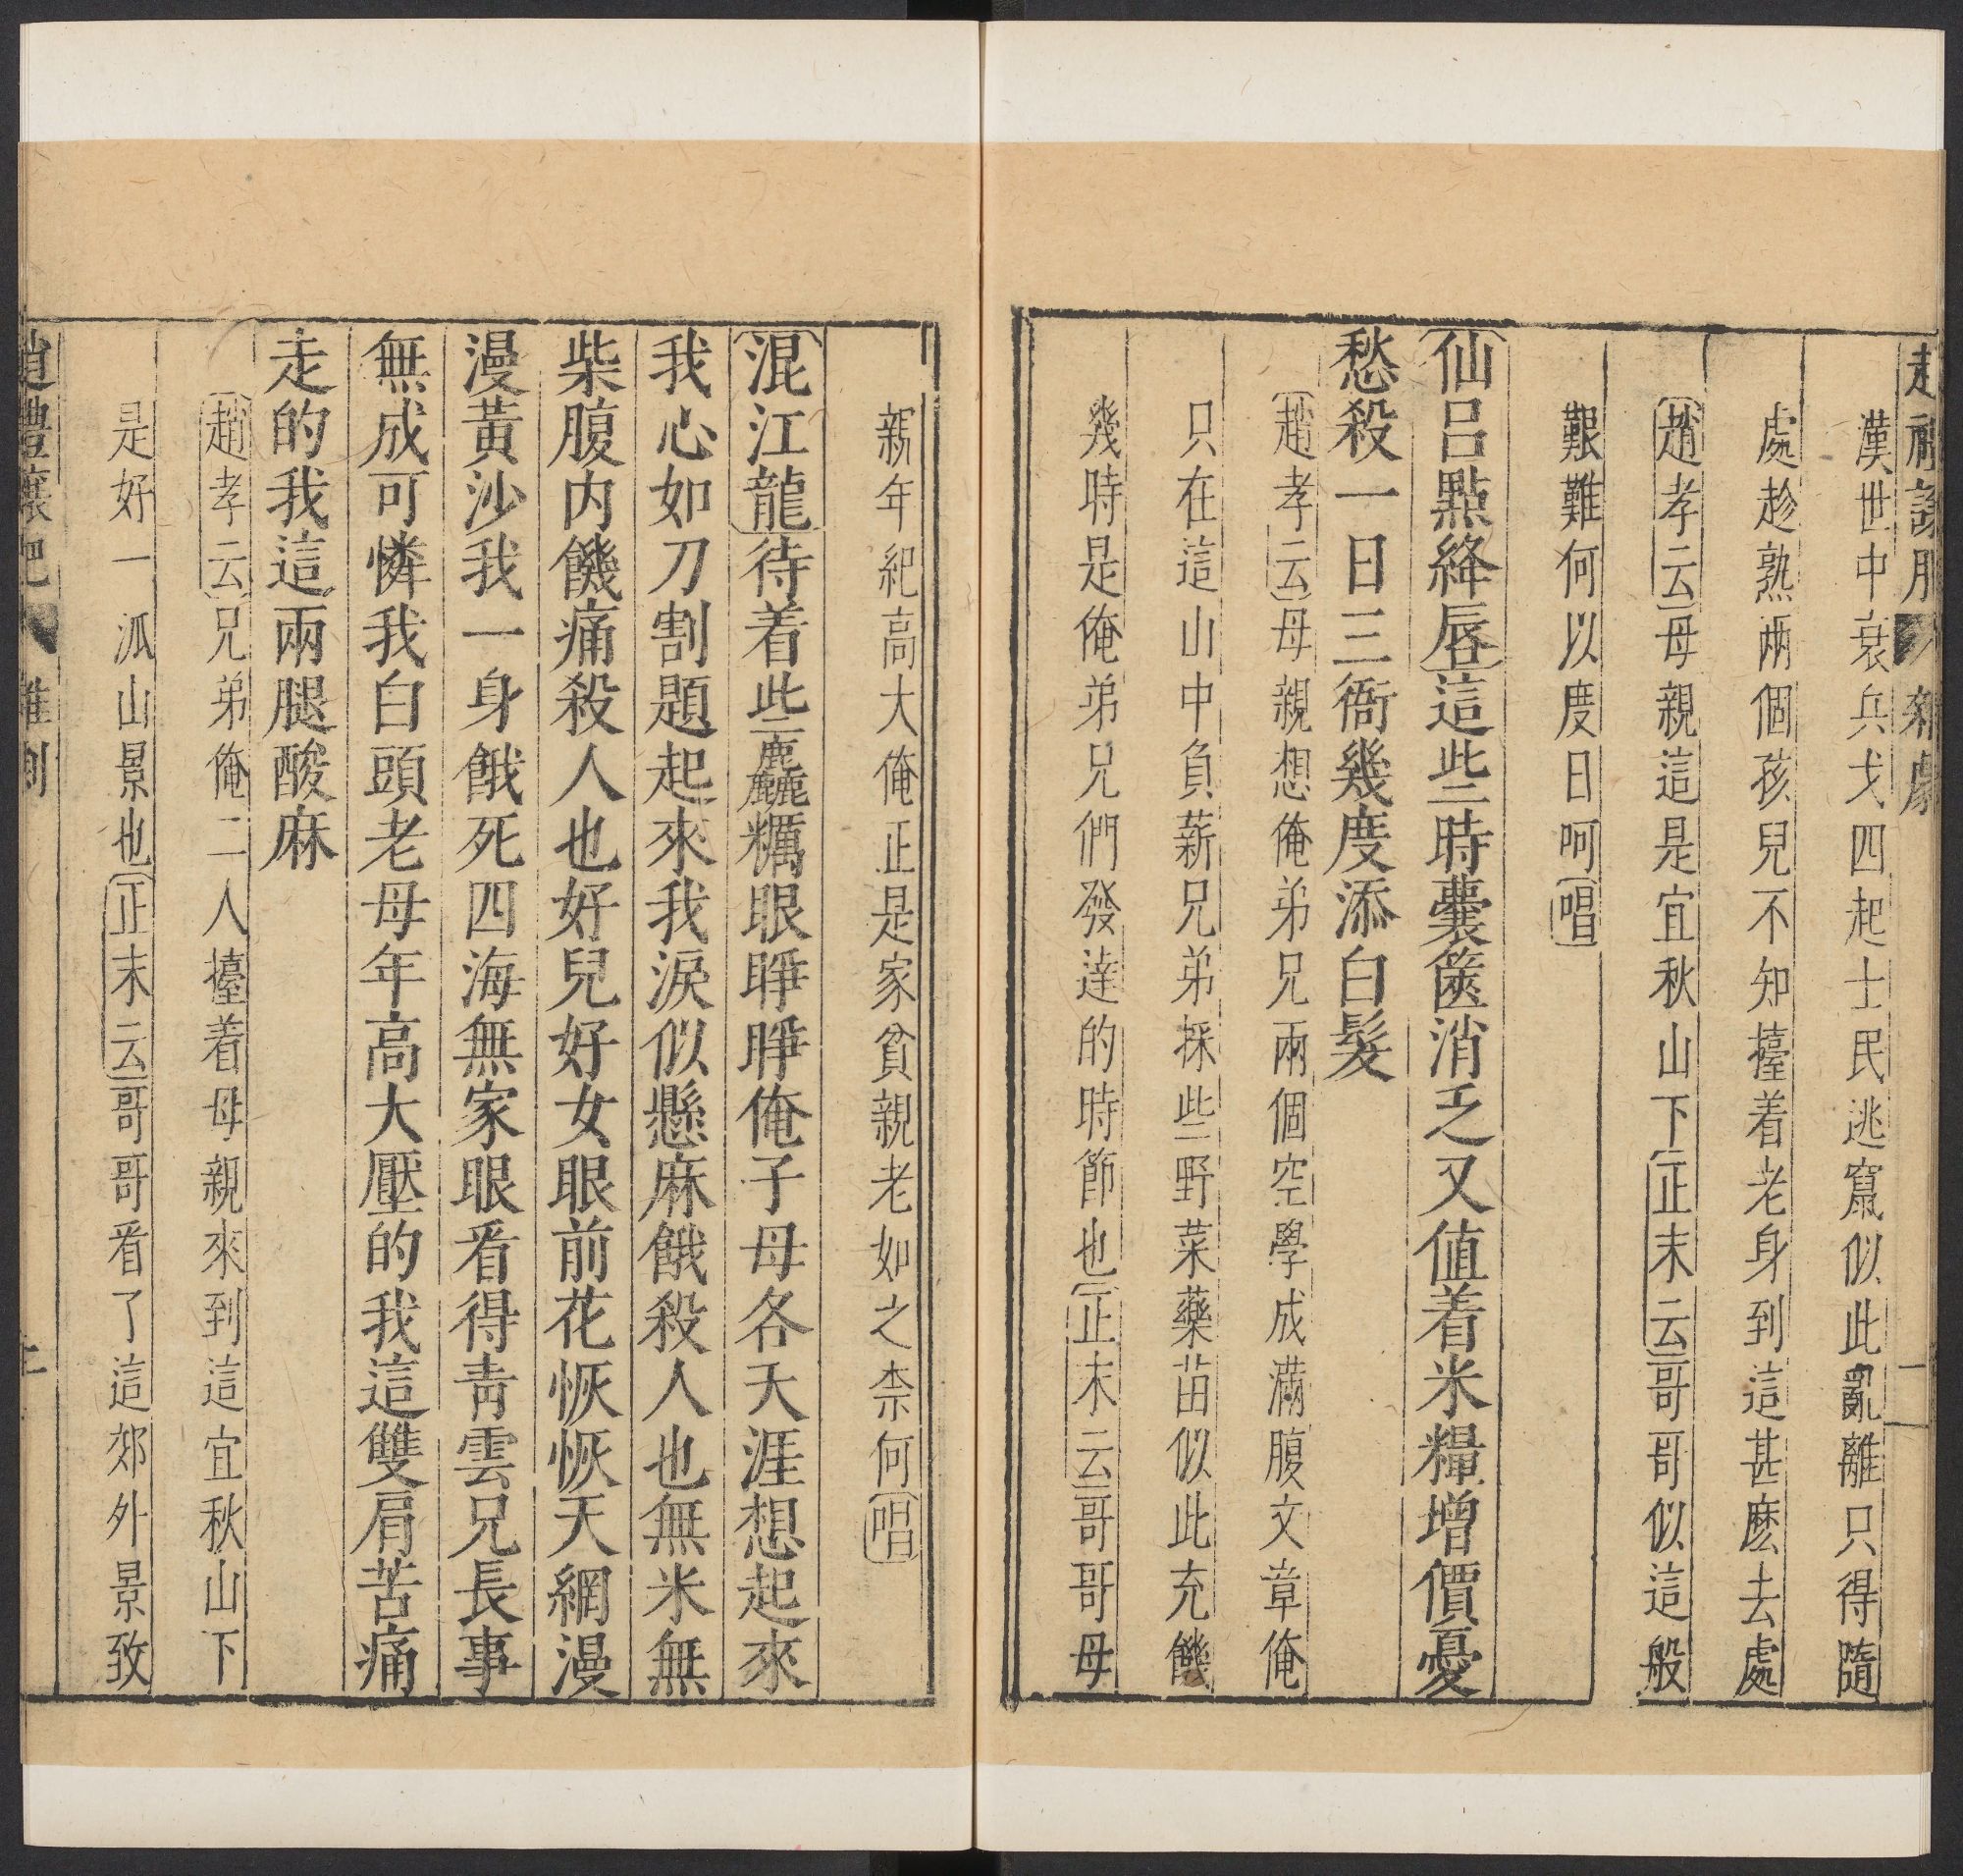 漢世中衰兵戈四起士民逃竄似此亂離只得隨
處趁熟兩個孩兒不知擡着老身到這甚麽去處
趙孝云母親這是宜秋山下正末云哥哥似這般
艱難何以度日呵唱
仙呂點絳唇這些時囊篋消乏又值着米糧增價憂
愁殺一日三衙幾度添白髮
趙孝云母親想俺弟兄兩個空學成滿腹文章俺
只在這山中負薪兄弟採些野菜藥苗似此充饑
幾時是俺弟兄們發達的時節也正末云哥哥母
親年紀高大俺正是家貧親老如之柰何唱
混江龍待着些麤糲眼睜睜俺子母各天涯想起來
我心如刀割題起來我淚似懸麻餓殺人也無米無
柴腹内饑痛殺人也好兒好女眼前花恢恢天網漫
漫黃沙我一身餓死四海無家眼看得青雲兄長事
無成可憐我白頭老母年高大壓的我這雙肩苦痛
走的我這兩腿酸麻
趙孝云兄弟俺二人擡着母親來到這宜秋山下
是好一派山景也正末云哥哥看了這郊外景致
趙禮讓肥 雜劇